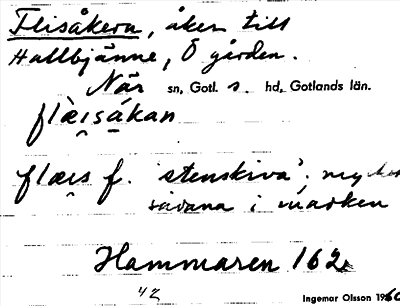 Flisåkern, åker till
Hallbjänne, Ö gården.
När sn, Gotl. s. hd, Gotlands län.
flàisákan
flæis f. 'stenskiva'. mycket
sadana i marken
Hammaren 162.
42
Ingemar Olsson 1960